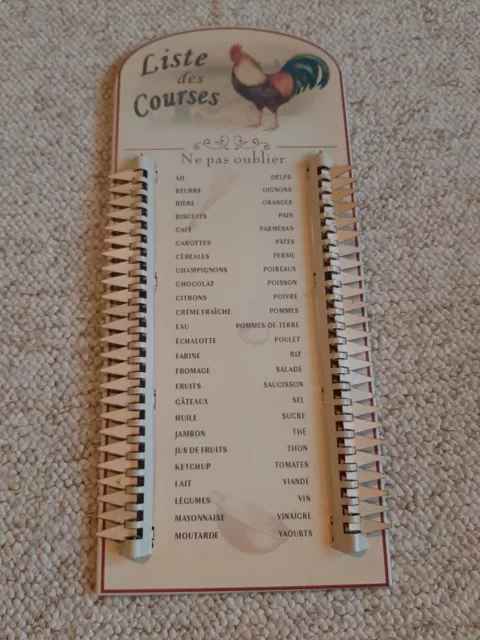 Liste
des
Courses
Ne pas oublier
AIL OEUFS
BEURRE OIGNONS
BIÈRE ORANGES
BISCUITS PAIN
CAFÉ PARMESAN
CAROTTES PÂTES
CÉRÉALES PERSIL
CHAMPIGNONS POIREAUX
CHOCOLAT POISSON
CITRONS POIVRE
CRÈME FRAÎCHE POMMES
EAU POMMES-DE-TERRE
ÉCHALOTTE POULET
FARINE RIZ
FROMAGE SALADE
FRUITS SAUCISSON
GÂTEAUX SEL
HUILE SUCRE
JAMBON THÉ
JUS DE FRUITS THON
KETCHUP TOMATES
LAIT VIANDE
LÉGUMES VIN
MAYONNAISE VINAIGRE
MOUTARDE YAOURTS